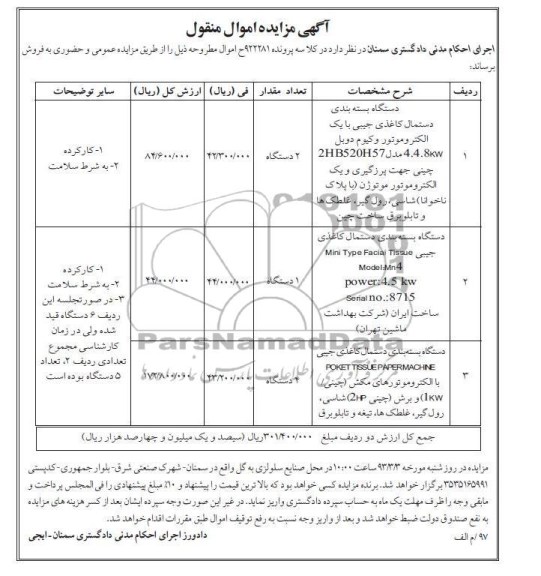 آگهی مزایده اموال منقول
اجرای احکام مدنی دادگستری سمنان در نظر دارد در کلاسه پرونده ۹۲۲۲۸۱ح اموال مطروحه ذیل را از طریق مزایده عمومی و حضوری به فروش
برساند:
ردیف شرح مشخصات تعداد مقدار فی (ریال) ارزش کل (ریال) سایر توضیحات
۱
دستگاه بسته بندی
دستمال کاغذی جیبی با یک
الکتروموتور وکیوم دوبل
4.4.8KW مدل 2HB520H57
چینی جهت پرزگیری و یک
الکتروموتور موتوژن (با پلاک
ناخوانا) شاسی، رول گیر، غلطک ها
و تابلو برق ساخت چین
۲ دستگاه
۴۲/۳۰۰/۰۰۰
۸۴/۶۰۰/۰۰۰
۱- کارکرده
۲- به شرط سلامت
۲
دستگاه بسته بندی دستمال کاغذی
جیبی Mini Type Facial Tissue
Model:Mn4
power:4.5 kw
Serial no.:8715
ساخت ایران (شرکت بهداشت
ماشین تهران)
۱ دستگاه
۴۴/۰۰۰/۰۰۰
۴۴/۰۰۰/۰۰۰
۱- کارکرده
۲- به شرط سلامت
۳- در صورتجلسه این
ردیف ۶ دستگاه قید
شده ولی در زمان
کارشناسی مجموع
تعدادی ردیف ۲، تعداد
۵ دستگاه بوده است
۳
دستگاه بسته بندی دستمال کاغذی جیبی
POKET TISSUE PAPER MACHINE
با الکتروموتورهای مکش (چینی)
1KW) و برش (چینی 2HP) شاسی،
رول گیر، غلطک ها، تیغه و تابلو برق
۴ دستگاه
۴۳/۲۰۰/۰۰۰
۱۷۲/۸۰۰/۰۰۰
جمع کل ارزش دو ردیف مبلغ ۳۰۱/۴۰۰/۰۰۰ ریال (سیصد و یک میلیون و چهارصد هزار ریال)
مزایده در روز شنبه مورخه ۹۳/۳/۳ ساعت ۱۰:۰۰ در محل صنایع سلولزی به گل واقع در سمنان- شهرک صنعتی شرق- بلوار جمهوری- کدپستی
۳۵۳۵۱۶۵۹۹۱ برگزار خواهد شد. برنده مزایده کسی خواهد بود که بالا ترین قیمت را پیشنهاد و ۱۰٪ مبلغ پیشنهادی را فی المجلس پرداخت و
مابقی وجه را ظرف مهلت یک ماه به حساب سپرده دادگستری واریز نماید. در غیر این صورت وجه سپرده ایشان بعد از کسر هزینه های مزایده
به نفع صندوق دولت ضبط خواهد شد و بعد از واریز وجه نسبت به رفع توقیف اموال طبق مقررات اقدام خواهد شد.
۹۷/م الف دادورز اجرای احکام مدنی دادگستری سمنان- ایجی
ParsNamadData